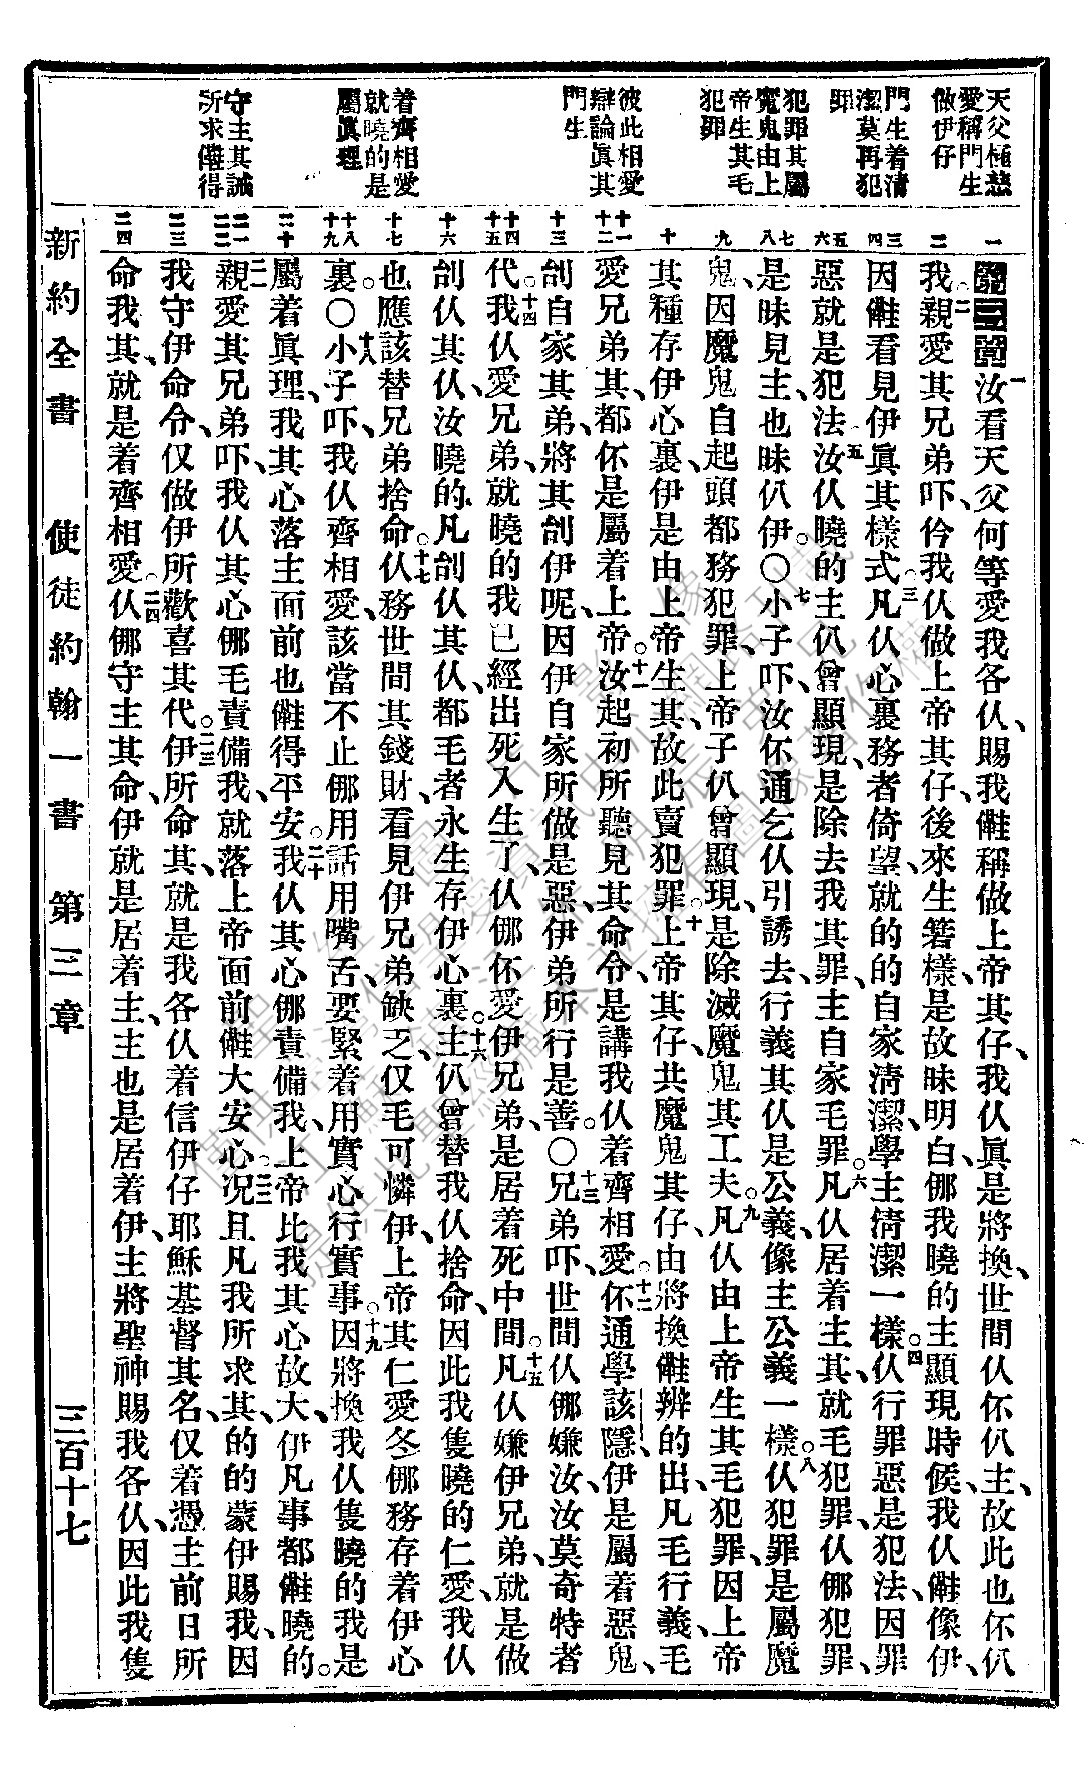 天父極慈
愛稱門生
做伊仔
門生着清
潔莫再犯
罪
犯罪其屬
魔鬼由上
帝生其毛
犯罪
彼此相愛
辯論眞其
門生
着齊相愛
就曉的是
屬眞理
守主其誡
所求㑑得
一
二
三
四
五
六
七
八
九
十
十一
十二
十三
十四
十五
十六
十七
十八
十九
二十
二一
二二
二三
二四
第三章一汝看天父何等愛我各仈、賜我㑑稱做上帝其仔、我仈眞是將換、世間仈伓仈主、故此也伓仈
我。二我親愛其兄弟吓、伶我仈做上帝其仔、後來生箬樣、是故昧明白、㑚我曉的主顯現時候、我仈㑑像伊、
因㑑看見伊眞其樣式。三凡仈心裏務者倚望、就的的自家淸潔、學主淸潔一樣。四仈行罪惡、是犯法、因罪
惡就是犯法。五汝仈曉的主仈曾顯現、是除去我其罪、主自家毛罪。六凡仈居着主其、就毛犯罪、仈㑚犯罪、
是昧見主、也昧仈伊。○七小子吓、汝伓通乞仈引誘去、行義其仈是公義、像主公義一樣。八仈犯罪、是屬魔
鬼、因魔鬼自起頭都務犯罪、上帝子仈曾顯現、是除滅魔鬼其工夫。九凡仈由上帝生其毛犯罪、因上帝
其種存伊心裏、伊是由上帝生其、故此賣犯罪。十上帝其仔、共魔鬼其仔、由將換㑑辨的出、凡毛行義、毛
愛兄弟其、都伓是屬着上帝。十一汝起初所聽見其命令、是講我仈着齊相愛。十二伓通學該隱、伊是屬着惡鬼、
刣自家其弟、將其刣伊呢、因伊自家所做是惡、伊弟所行是善。○十三兄弟吓、世間仈㑚嫌汝、汝莫奇特者
代。十四我仈愛兄弟、就曉的我已經出死入生了、仈㑚伓愛伊兄弟、是居着死中間。十五凡仈嫌伊兄弟、就是做
刣仈其仈、汝曉的凡刣仈其仈、都毛者永生存伊心裏。十六主仈曾替我仈捨命、因此我隻曉的仁愛、我仈
也應該替兄弟捨命。十七仈務世間其錢財、看見伊兄弟缺乏、仅毛可憐伊、上帝其仁愛冬㑚務存着伊心
裏。○十八小子吓、我仈齊相愛、該當不止㑚用話用嘴舌、要緊着用實心行實事。十九因將換我仈隻曉的我是
屬着眞理、我其心落主面前也㑑得平安。二十我仈其心㑚責備我、上帝比我其心故大、伊凡事都㑑曉的。
二一親愛其兄弟吓、我仈其心㑚毛責備我、就落上帝面前㑑大安心。二二況且凡我所求其、的的蒙伊賜我、因
我守伊命令、仅做伊所歡喜其代。二三伊所命其、就是我各仈着信伊仔耶穌基督其名、仅着憑主前日所
命我其、就是着齊相愛。二四仈㑚守主其命、伊就是居着主、主也是居着伊、主將聖神賜我各仈、因此我隻
新約全書　使徒約翰一書　第三章　三百十七